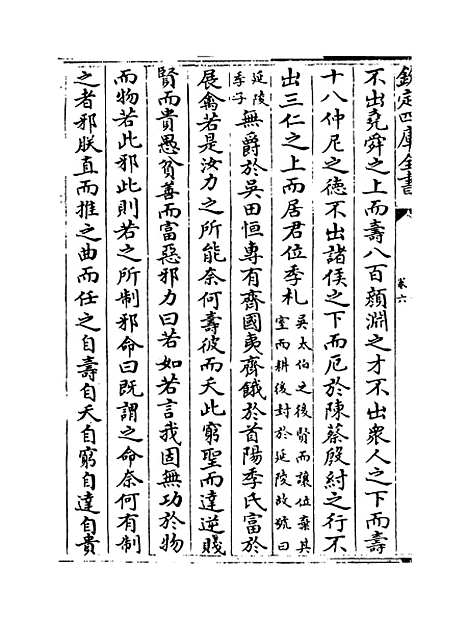 欽定四庫全書
卷六
不出堯舜之上而壽八百顏淵之才不出衆人之下而壽
十八仲尼之德不出諸侯之下而厄於陳蔡殷紂之行不
出三仁之上而居君位季札吳太伯之後賢而讓位棄其室而耕後封於延陵故號曰
延陵季子無爵於吳田恒專有齊國夷齊餓於首陽季氏富於
展禽若是汝力之所能奈何壽彼而夭此窮聖而達逆賤
賢而貴愚貧善而富惡邪力曰若如若言我固無功於物
而物若此邪此則若之所制邪命曰既謂之命奈何有制
之者邪朕直而推之曲而任之自壽自夭自窮自達自貴